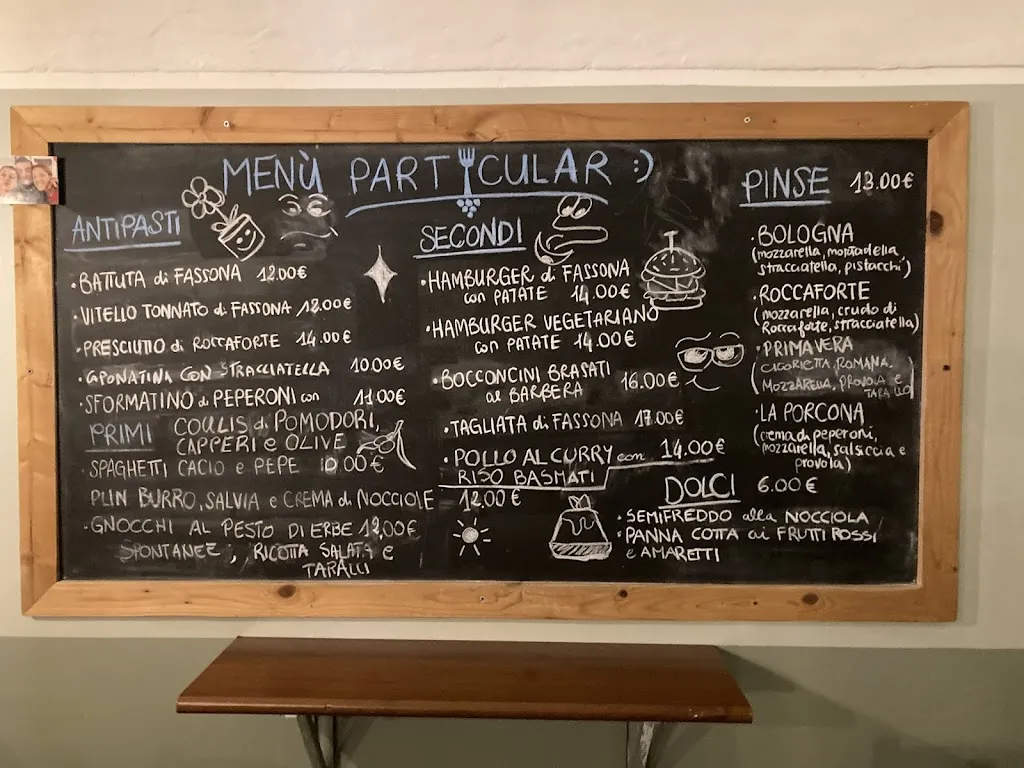 MENÙ PARTYCULAR :)
ANTIPASTI
• BATTUTA di FASSONA 12.00€
• VITELLO TONNATO di FASSONA 12.00€
• PRESCIUTTO di ROCCAFORTE 14.00€
• CAPONATINA CON STRACCIATELLA 10.00€
• SFORMATINO di PEPERONI con 11.00€
COULIS di POMODORI,
CAPPERI e OLIVE
PRIMI
• SPAGHETTI CACIO e PEPE 10.00€
PLIN BURRO, SALVIA e CREMA di NOCCIOLE 12.00€
• GNOCCHI AL PESTO DI ERBE 12,00€
SPONTANEE, RICOTTA SALATA e
TARALLI
SECONDI
• HAMBURGER di FASSONA
con PATATE 14.00€
• HAMBURGER VEGETARIANO
con PATATE 14.00€
• BOCCONCINI BRASATI
al BARBERA 16.00€
• TAGLIATA di FASSONA 17.00€
• POLLO AL CURRY con 14.00€
RISO BASMATI
PINSE 13.00€
• BOLOGNA
(mozzarella, mortadella,
stracciatella, pistacchi)
• ROCCAFORTE
(mozzarella, crudo di
Roccaforte, stracciatella)
• PRIMAVERA
(CICORIETTA ROMANA,
MOZZARELLA, PROVOLA e
• LA PORCONA
(crema di peperoni,
mozzarella, salsiccia e
provola)
DOLCI 6.00€
• SEMIFREDDO alla NOCCIOLA
• PANNA COTTA ai FRUTTI ROSSI
e AMARETTI